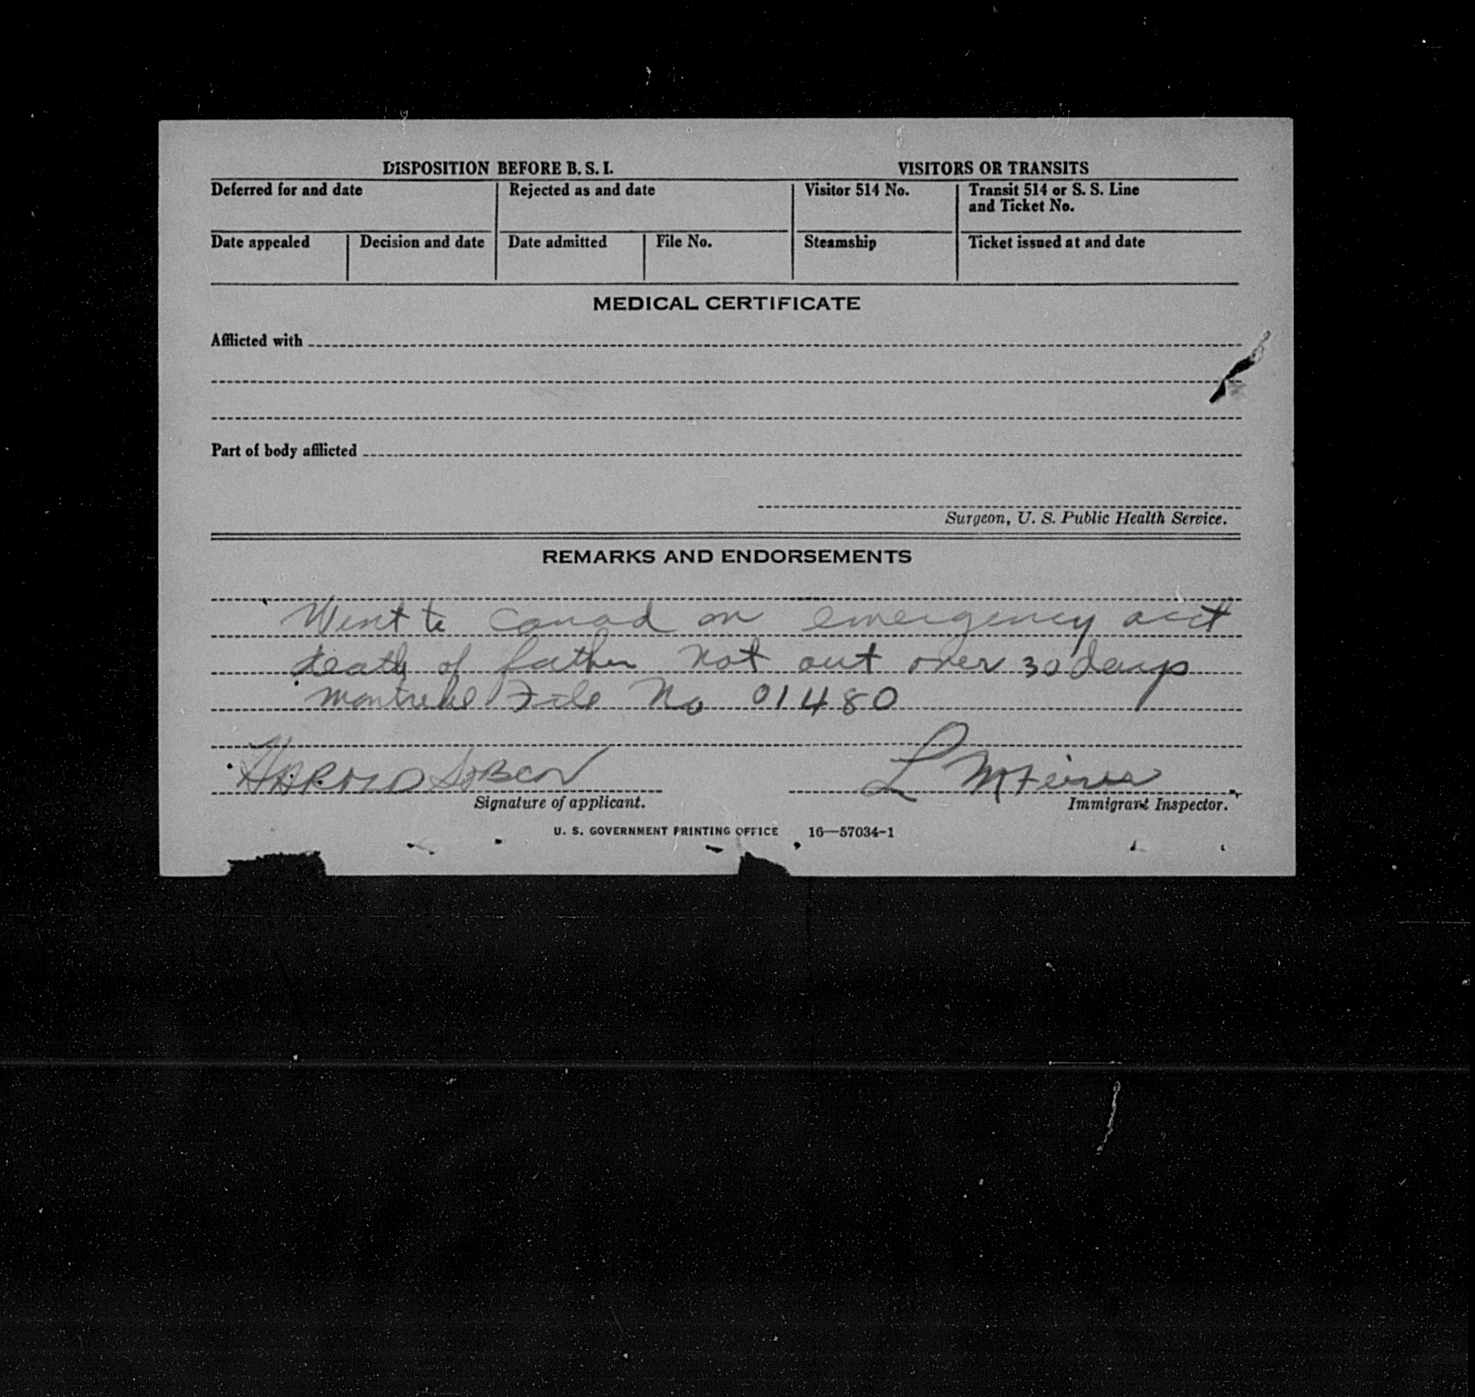 DISPOSITION BEFORE B. S. I. VISITORS OR TRANSITS
Deferred for and date Rejected as and date Visitor 514 No. Transit 514 or S. S. Line and Ticket No.
Date appealed Decision and date Date admitted File No. Steamship Ticket issued at and date
MEDICAL CERTIFICATE
Afflicted with
Part of body afflicted
Surgeon, U. S. Public Health Service.
REMARKS AND ENDORSEMENTS
Went to Canad on emergency acct
death of father Not out over 30 days
File No 01480
HAROLD
Signature of applicant. Immigrant Inspector.
U. S. GOVERNMENT PRINTING OFFICE 16—57034-1